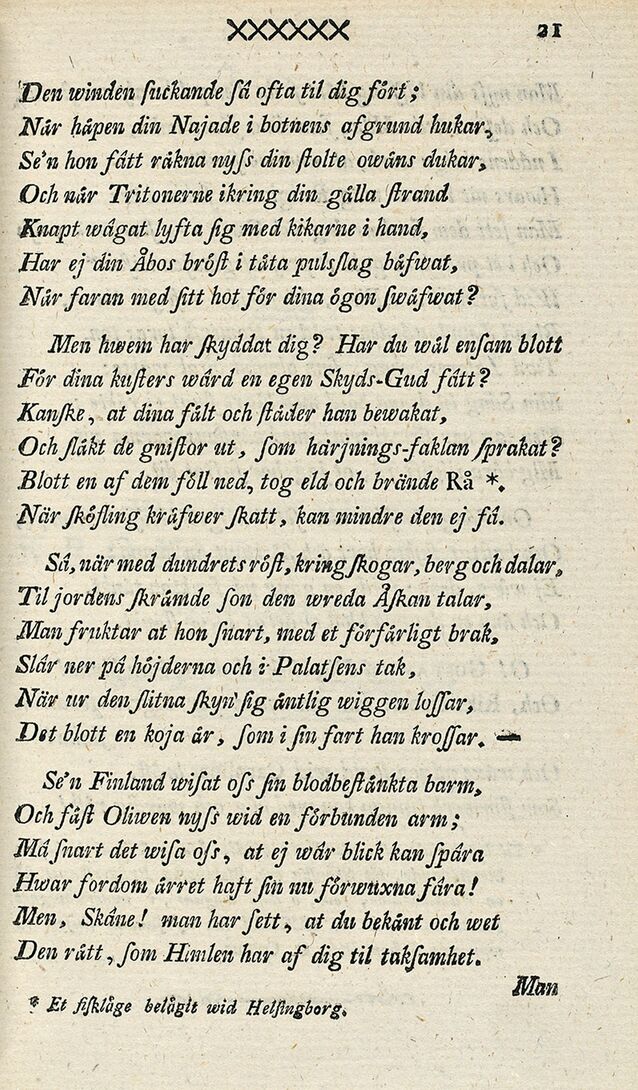 XXXXXX 21
Den winden ſuckande ſå ofta til dig fört;
När häpen din Najade i botnens afgrund hukar,
Se'n hon fått räkna nyſs din ſtolte owäns dukar,
Och när Tritonerne ikring din gälla ſtrand
Knapt wågat lyfta ſig med kikarne i hand,
Har ej din Åbos bröſt i täta pulsſlag bäfwat,
När faran med ſitt hot för dina ögon ſwäfwat?
Men hwem har ſkyddat dig? Har du wäl enſam blott
För dina kuſters wård en egen Skyds-Gud fått?
Kanſke, at dina fält och ſtäder han bewakat,
Och ſläkt de gniſtor ut, ſom härjnings-faklan ſprakat?
Blott en af dem föll ned, tog eld och brände Rå *.
När ſköfling kräfwer ſkatt, kan mindre den ej få.
Så, när med dundrets röſt, kring ſkogar, berg och dalar,
Til jordens ſkrämde ſon den wreda Åſkan talar,
Man fruktar at hon ſnart, med et förfärligt brak,
Slår ner på höjderna och i Palatſens tak,
När ur den ſlitna ſkyn' ſig äntlig wiggen loſſar,
Det blott en koja är, ſom i ſin fart han kroſſar. —
Se'n Finland wiſat oſs ſin blodbeſtänkta barm,
Och fäſt Oliwen nyſs wid en förbunden arm;
Må ſnart det wiſa oſs, at ej wår blick kan ſpåra
Hwar fordom ärret haft ſin nu förwuxna fåra!
Men, Skåne! man har ſett, at du bekänt och wet
Den rätt, ſom Himlen har af dig til takſamhet.
Man
* Et fiſkläge belägit wid Helſingborg.